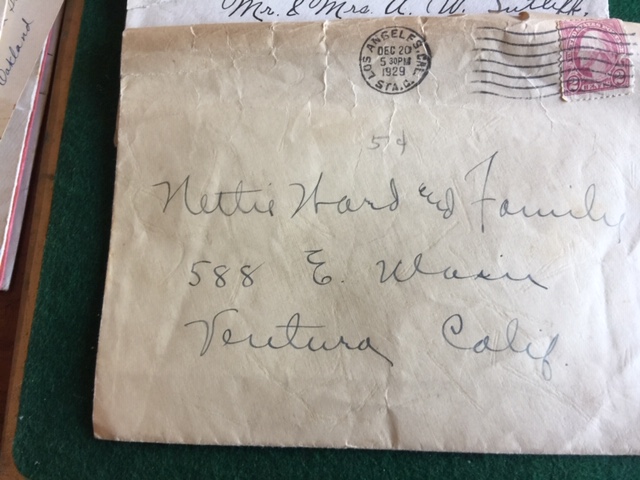 Mr. & Mrs. A. W. Sutliff,
Oakland
LOS ANGELES, CAL.
DEC 20
5 30 PM
1929
STA. C.
54
Nettie Ward and Family
588 E. Main
Ventura Calif.